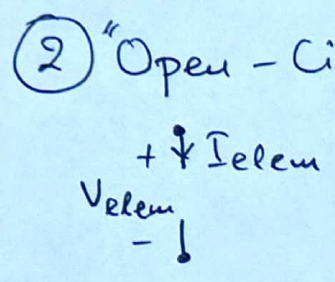 ② "Open - Ci
+ Ielem
Velem
-